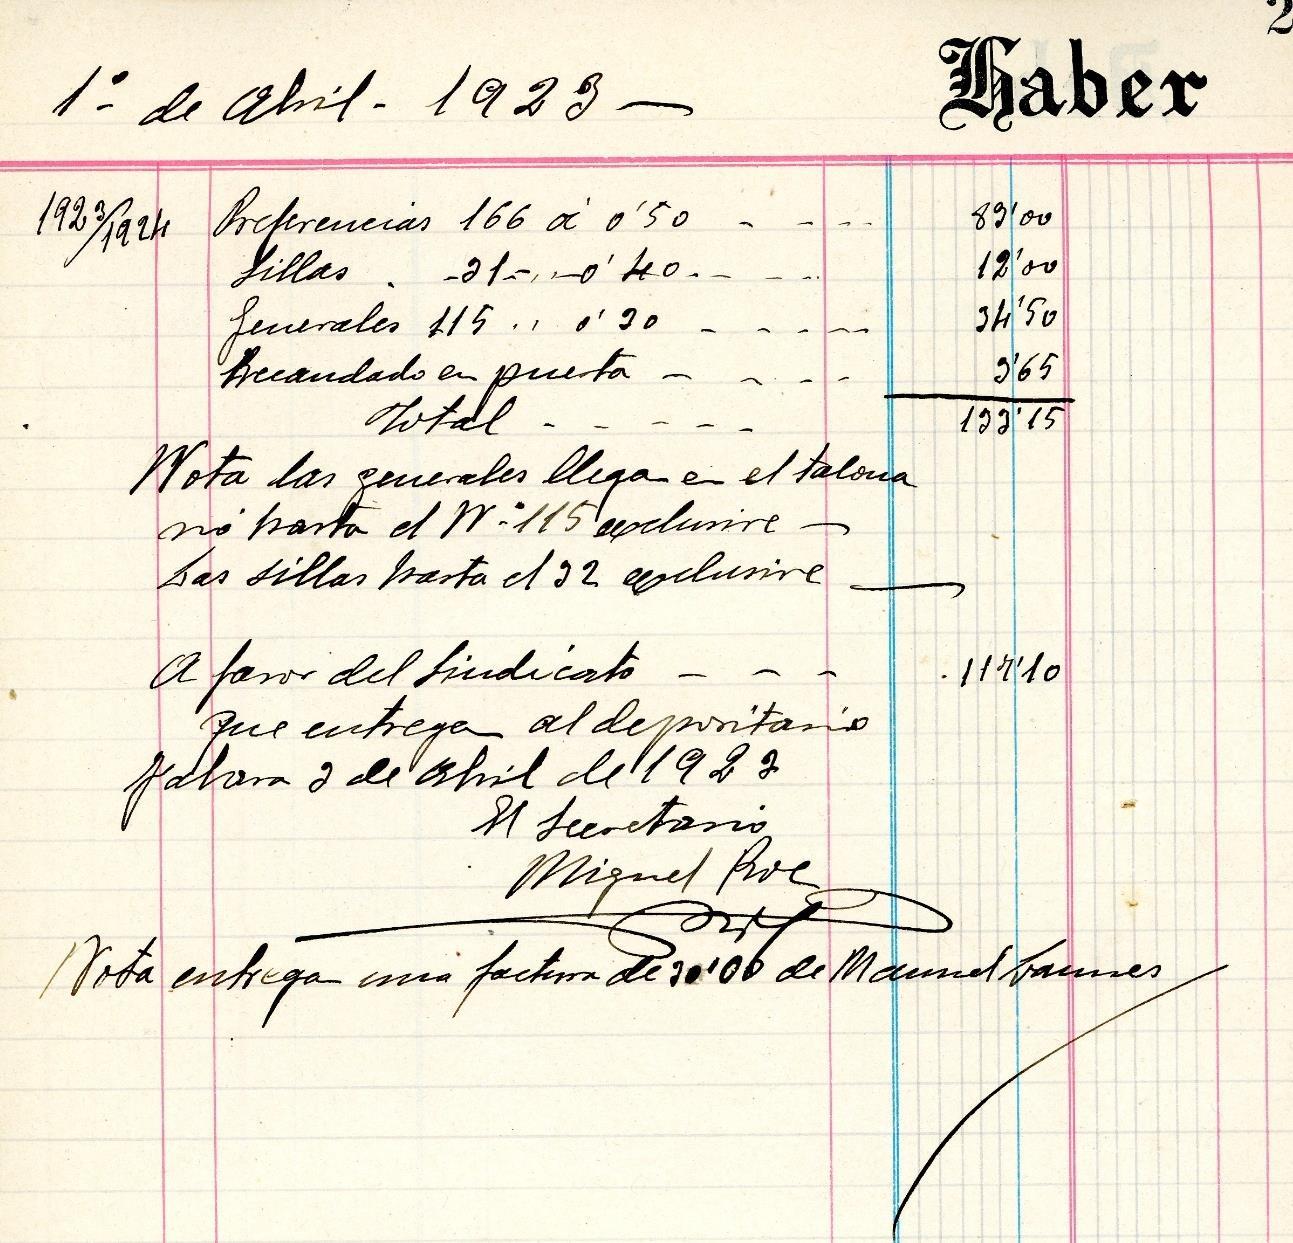 2
Haber
1º de Abril - 1923 —
1923/1924 Preferencias 166 á 0'50 - - - - 83'00
Sillas . - 31 - " - 0'40 - - - - 12'00
Generales 115 " 0'30 - - - - 34'50
Recaudado en puerta - - - - 3'65
Total - - - - - 133'15
Nota las generales llega en el talona
rió hasta el Nº 115 exclusive —
Las sillas hasta el 32 exclusive —
A favor del Sindicato - - - 117'10
que entrega al depositario
3 de Abril de 1923
El Secretario
Miguel
Nota entrega una factura de 30'00 de Manuel